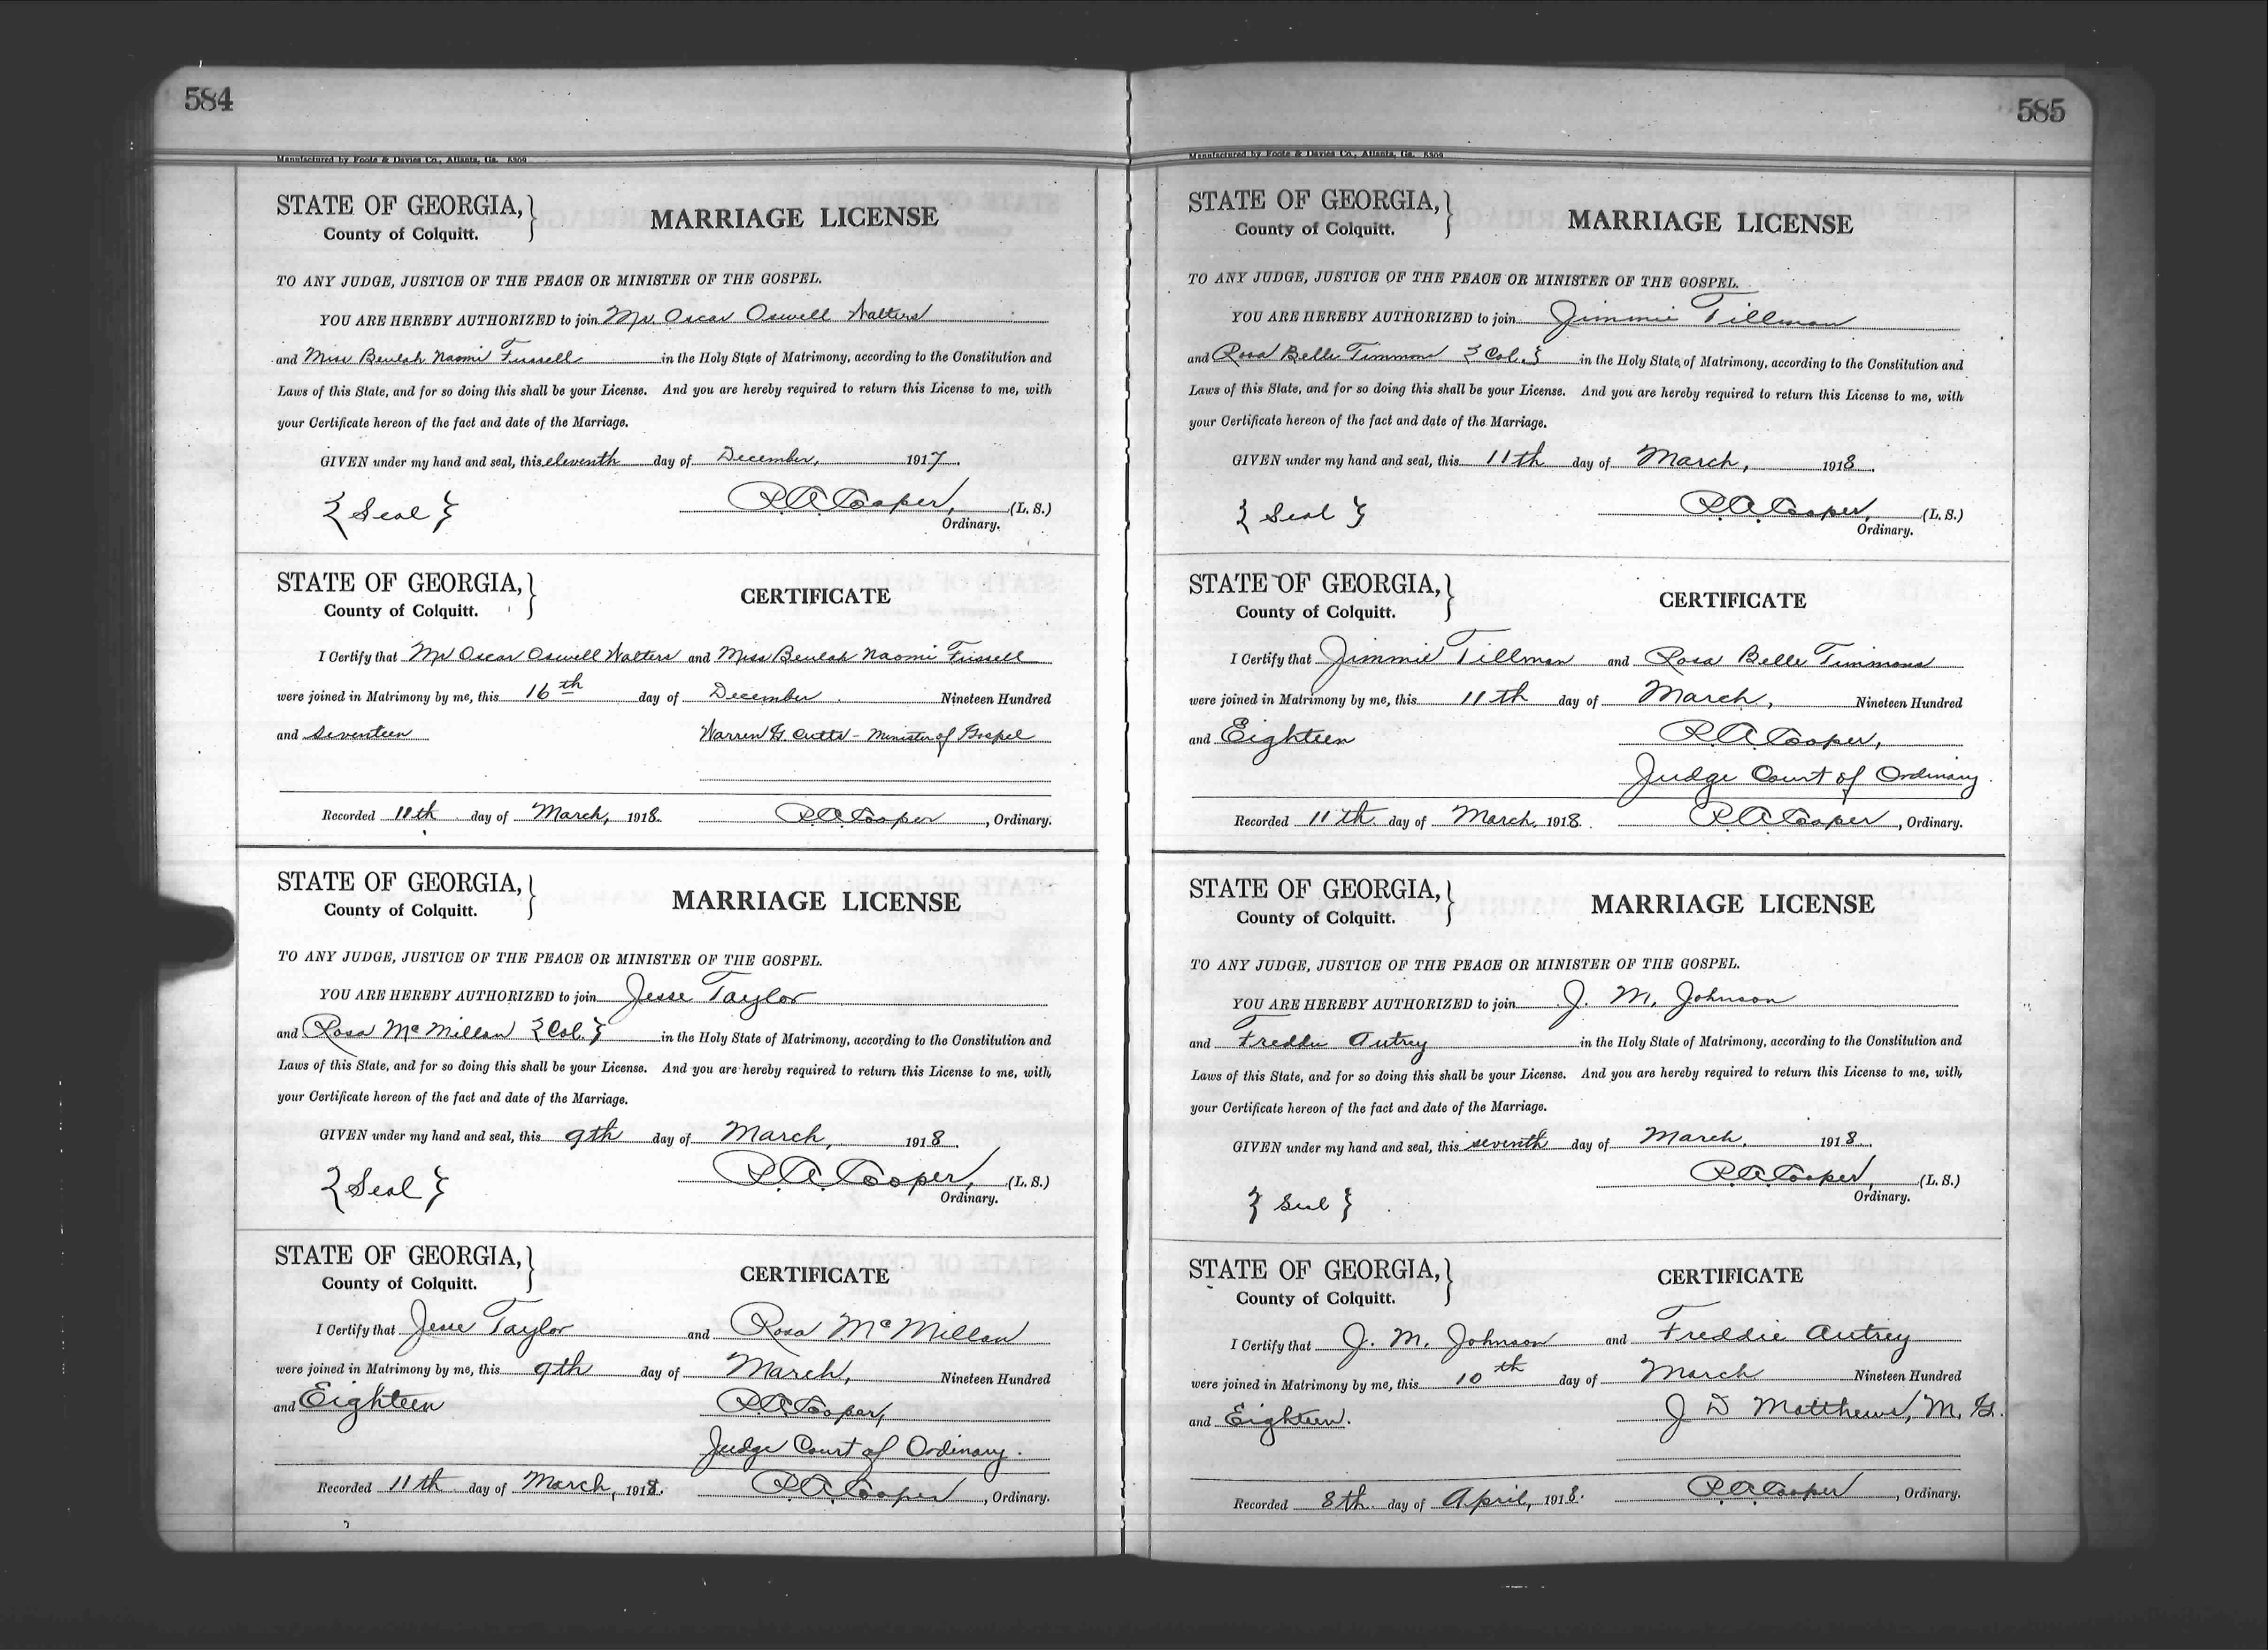 584
Manufactured by Foote & Davies Co., Atlanta, Ga. 
STATE OF GEORGIA,
County of Colquitt.
MARRIAGE LICENSE
TO ANY JUDGE, JUSTICE OF THE PEACE OR MINISTER OF THE GOSPEL.
YOU ARE HEREBY AUTHORIZED to join Mr. Oscar Oswell Walters
and Miss Beulah Naomi Fussell in the Holy State of Matrimony, according to the Constitution and
Laws of this State, and for so doing this shall be your License. And you are hereby required to return this License to me, with
your Certificate hereon of the fact and date of the Marriage.
GIVEN under my hand and seal, this eleventh day of December, 1917.
{Seal} R.A. Cooper, (L. S.)
Ordinary.
STATE OF GEORGIA,
County of Colquitt.
CERTIFICATE
I Certify that Mr Oscar Oswell Walters and Miss Beulah Naomi Fussell
were joined in Matrimony by me, this 16th day of December. Nineteen Hundred
and Seventeen Warren G. Cutts - Minister of Gospel
Recorded 11th day of March, 1918. R.A. Cooper, Ordinary.
STATE OF GEORGIA,
County of Colquitt.
MARRIAGE LICENSE
TO ANY JUDGE, JUSTICE OF THE PEACE OR MINISTER OF THE GOSPEL.
YOU ARE HEREBY AUTHORIZED to join Jesse Taylor
and Rosa McMillan {Col.} in the Holy State of Matrimony, according to the Constitution and
Laws of this State, and for so doing this shall be your License. And you are hereby required to return this License to me, with
your Certificate hereon of the fact and date of the Marriage.
GIVEN under my hand and seal, this 9th day of March, 1918.
{Seal} R.A. Cooper, (L. S.)
Ordinary.
STATE OF GEORGIA,
County of Colquitt.
CERTIFICATE
I Certify that Jesse Taylor and Rosa McMillan
were joined in Matrimony by me, this 9th day of March, Nineteen Hundred
and Eighteen R.A. Cooper,
Judge Court of Ordinary.
Recorded 11th day of March, 1918. R.A. Cooper, Ordinary.
585
Manufactured by Foote & Davies Co., Atlanta, Ga. 
STATE OF GEORGIA,
County of Colquitt.
MARRIAGE LICENSE
TO ANY JUDGE, JUSTICE OF THE PEACE OR MINISTER OF THE GOSPEL.
YOU ARE HEREBY AUTHORIZED to join Jimmie Tillman
and Rosa Belle Timmons {Col.} in the Holy State of Matrimony, according to the Constitution and
Laws of this State, and for so doing this shall be your License. And you are hereby required to return this License to me, with
your Certificate hereon of the fact and date of the Marriage.
GIVEN under my hand and seal, this 11th day of March, 1918.
{Seal} R.A. Cooper, (L. S.)
Ordinary.
STATE OF GEORGIA,
County of Colquitt.
CERTIFICATE
I Certify that Jimmie Tillman and Rosa Belle Timmons
were joined in Matrimony by me, this 11th day of March, Nineteen Hundred
and Eighteen R.A. Cooper,
Judge Court of Ordinary.
Recorded 11th day of March, 1918. R.A. Cooper, Ordinary.
STATE OF GEORGIA,
County of Colquitt.
MARRIAGE LICENSE
TO ANY JUDGE, JUSTICE OF THE PEACE OR MINISTER OF THE GOSPEL.
YOU ARE HEREBY AUTHORIZED to join J. M. Johnson
and Freddie Autrey in the Holy State of Matrimony, according to the Constitution and
Laws of this State, and for so doing this shall be your License. And you are hereby required to return this License to me, with
your Certificate hereon of the fact and date of the Marriage.
GIVEN under my hand and seal, this seventh day of March, 1918.
{Seal} R.A. Cooper, (L. S.)
Ordinary.
STATE OF GEORGIA,
County of Colquitt.
CERTIFICATE
I Certify that J. M. Johnson and Freddie Autrey
were joined in Matrimony by me, this 10th day of March Nineteen Hundred
and Eighteen. J D Matthews, M. G.
Recorded 8th day of April, 1918. R.A. Cooper, Ordinary.